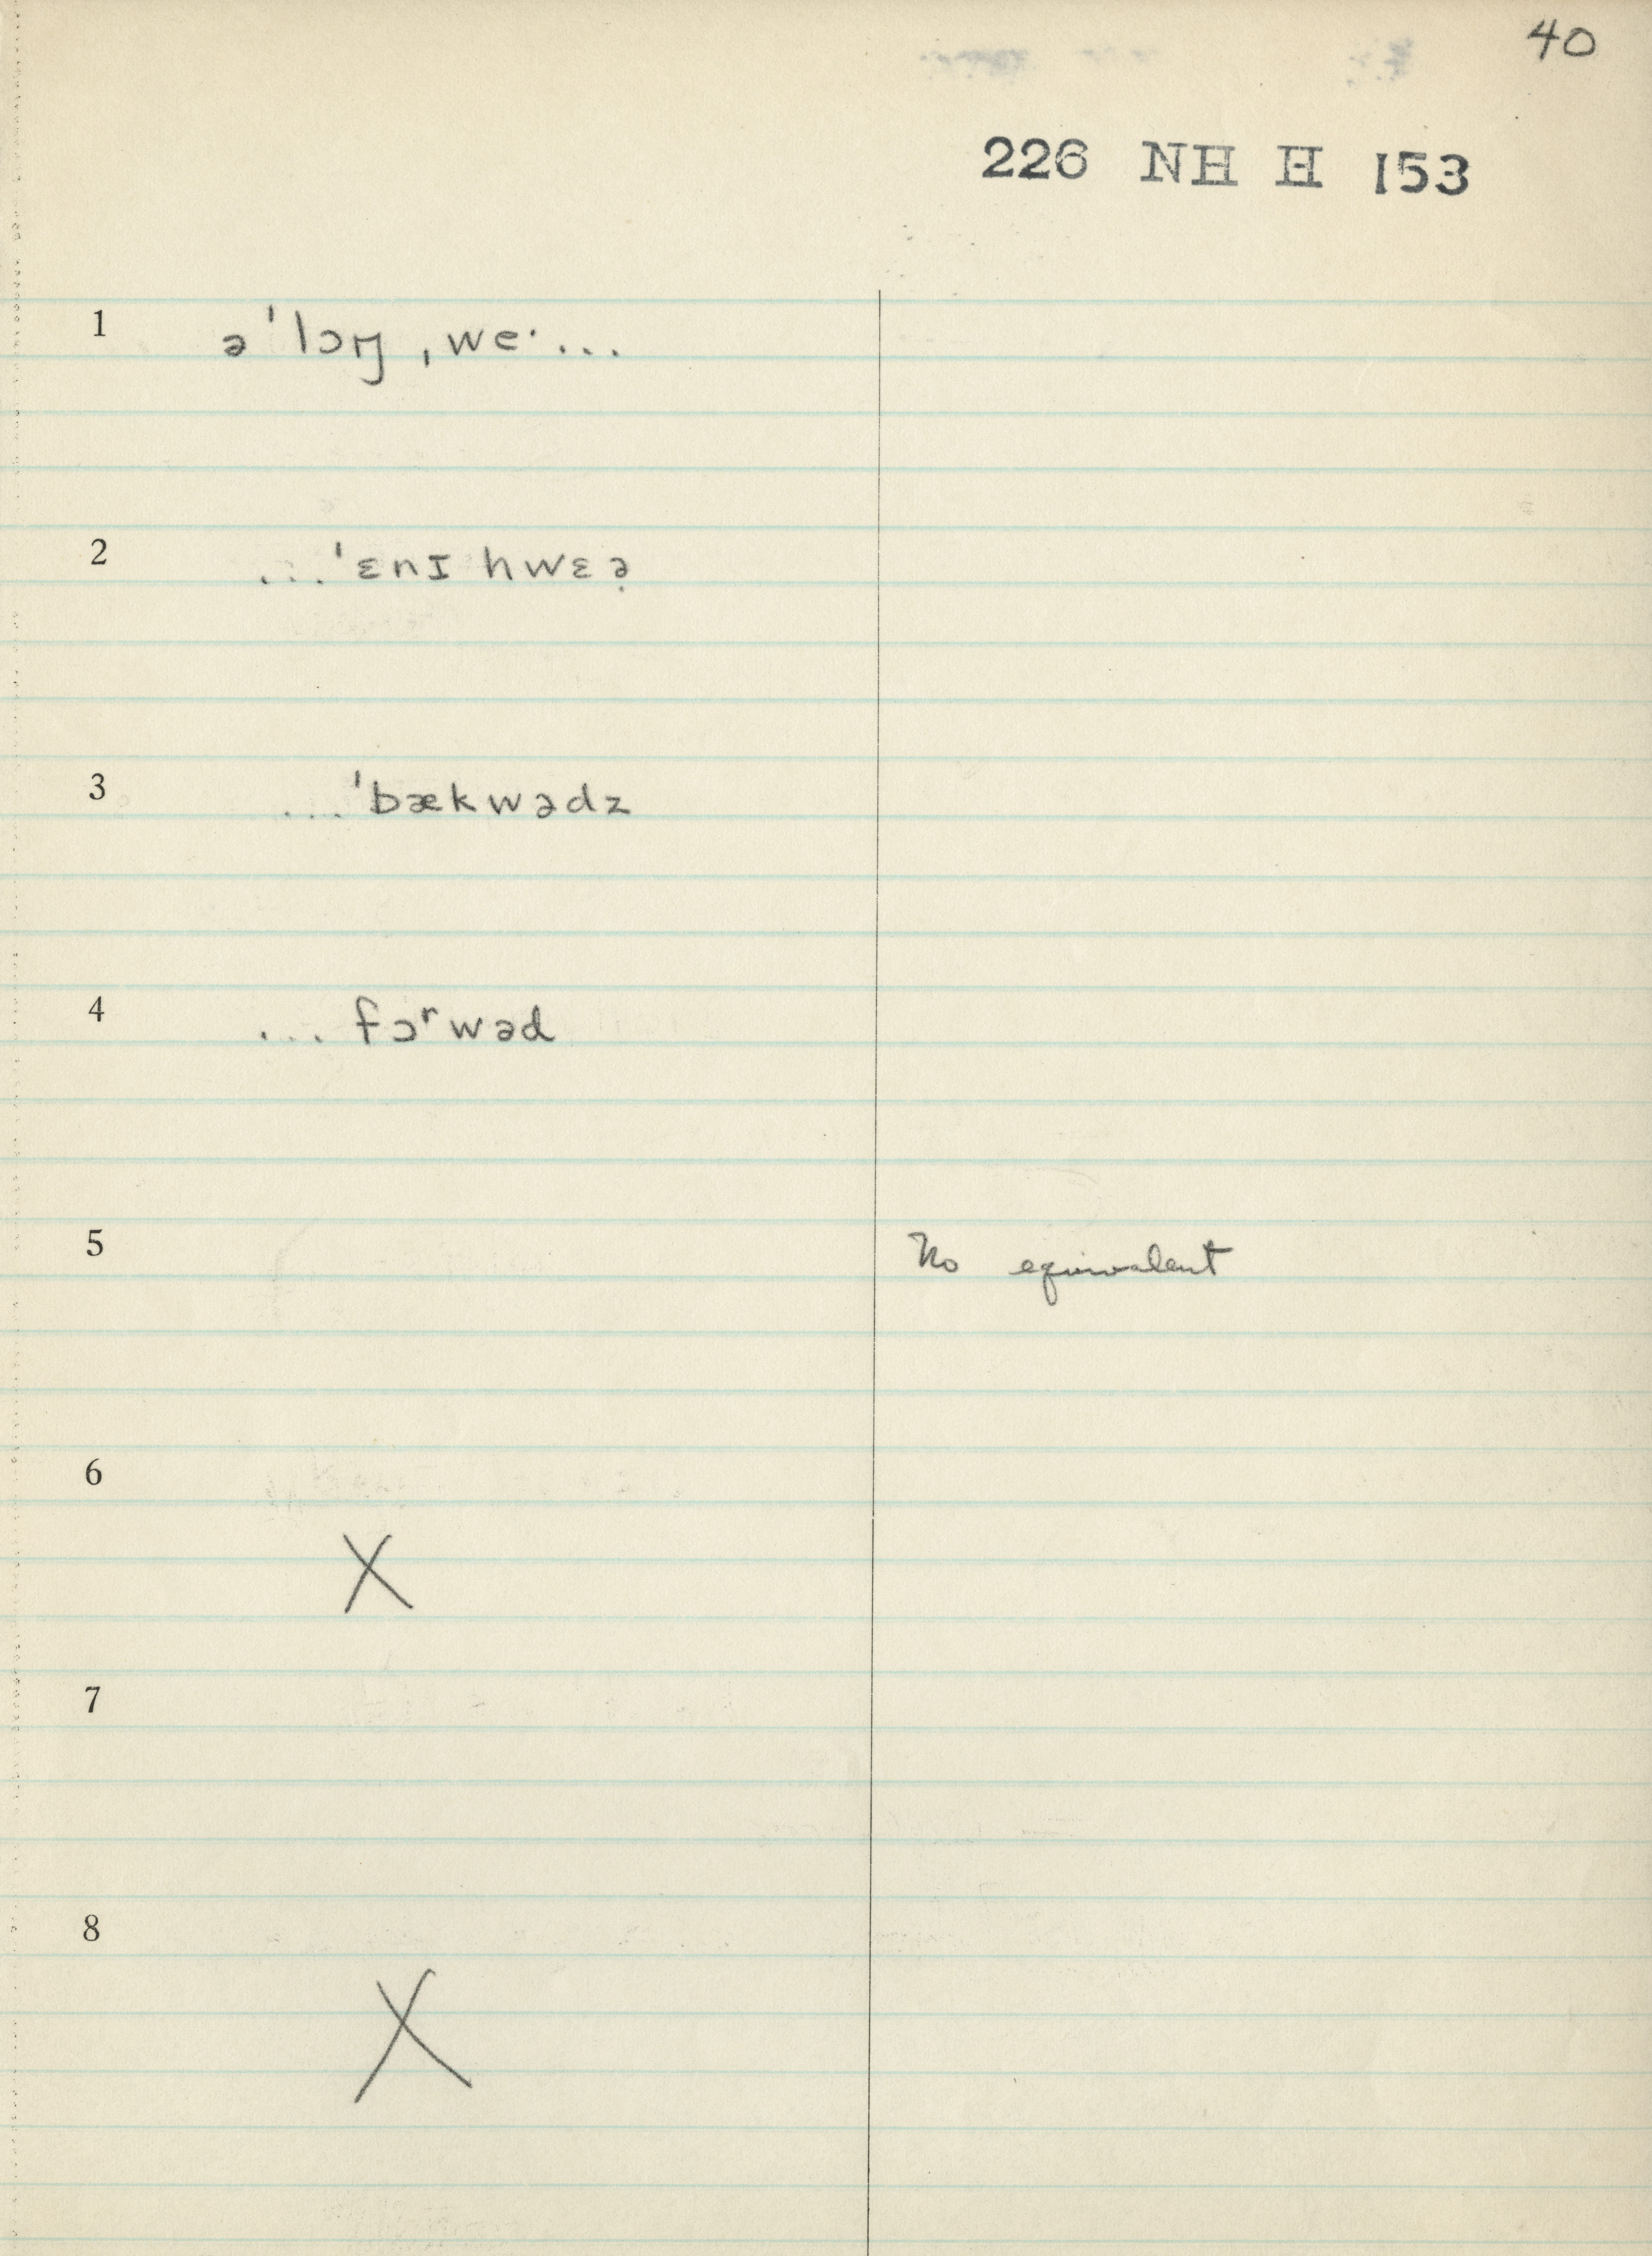 40
226 NH H 153
1 ə'lɔŋ ˌweˑ...
2 ...'ɛnɪ hwɛə̣
3 ...'bækwədz
4 ... fɔʳwəd
5 No equivalent
6
X
7
8
X